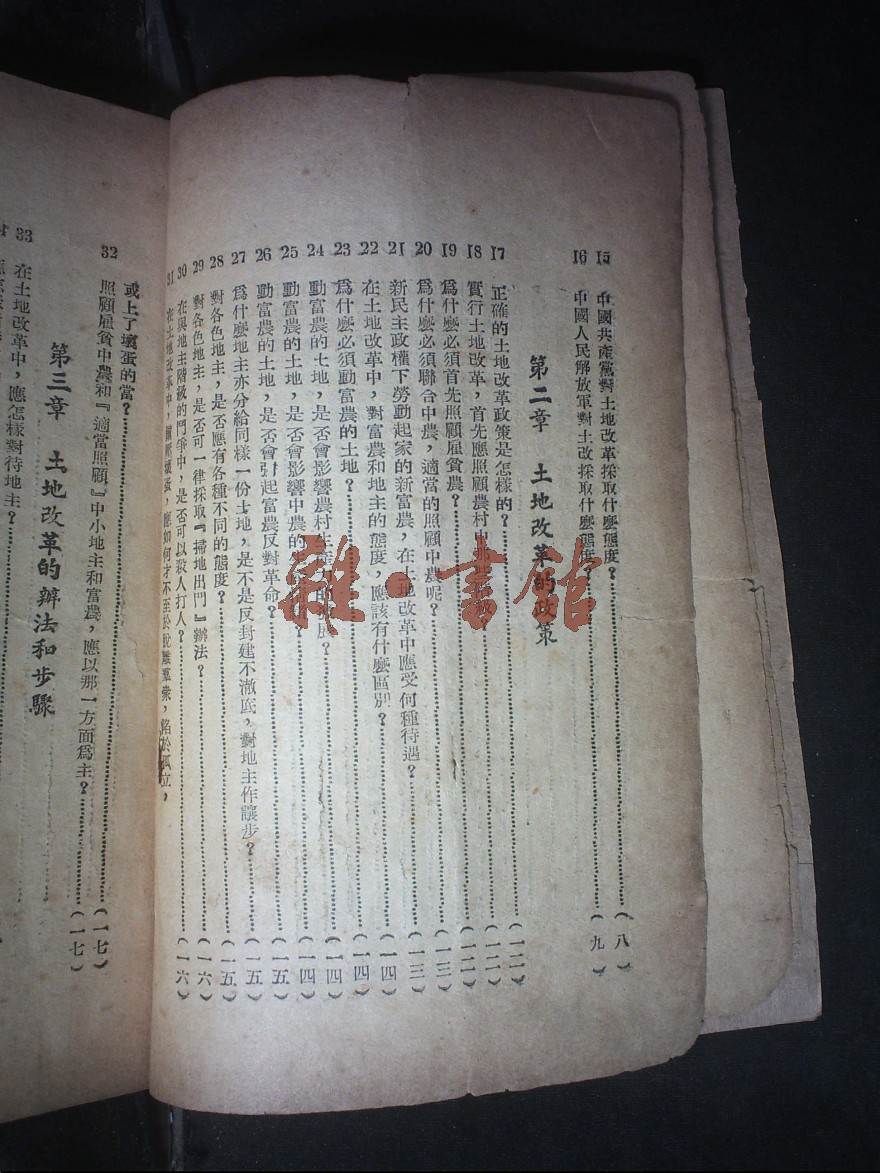 15 中國共產黨對土地改革採取什麽態度？……（八）
16 中國人民解放軍對土改採取什麽態度？……（九）
第二章 土地改革的政策
17 正確的土地改革政策是怎樣的？……（一二）
18 實行土地改革，首先應照顧農村中那些階級？……（一二）
19 爲什麽必須首先照顧雇貧農？……（一二）
20 爲什麽必須聯合中農，適當的照顧中農呢？……（一三）
21 新民主政權下勞動起家的新富農，在土地改革中應受何種待遇？……（一三）
22 在土地改革中，對富農和地主的態度，應該有什麽區別？……（一四）
23 爲什麽必須動富農的土地？……（一四）
24 動富農的土地，是否會影響農村生產力的發展？……（一四）
25 動富農的土地，是否會影響中農的……（一四）
26 動富農的土地，是否會引起富農反對革命？……（一五）
27 爲什麽地主亦分給同樣一份土地，是不是反封建不澈底，對地主作讓步？……（一五）
28 對各色地主，是否應有各種不同的態度？……（一五）
29 對各色地主，是否可一律採取『掃地出門』辦法？……（一六）
30 在與地主階級的鬥爭中，是否可以殺人打人？……（一六）
31 在土地改革中，壞蛋，應如何才不至於脫離羣衆，陷於孤立，
或上了壞蛋的當？……（一七）
32 照顧雇貧中農和『適當照顧』中小地主和富農，應以那一方面爲主？……（一七）
第三章 土地改革的辦法和步驟
33 在土地改革中，應怎樣對待地主？
雜·書館